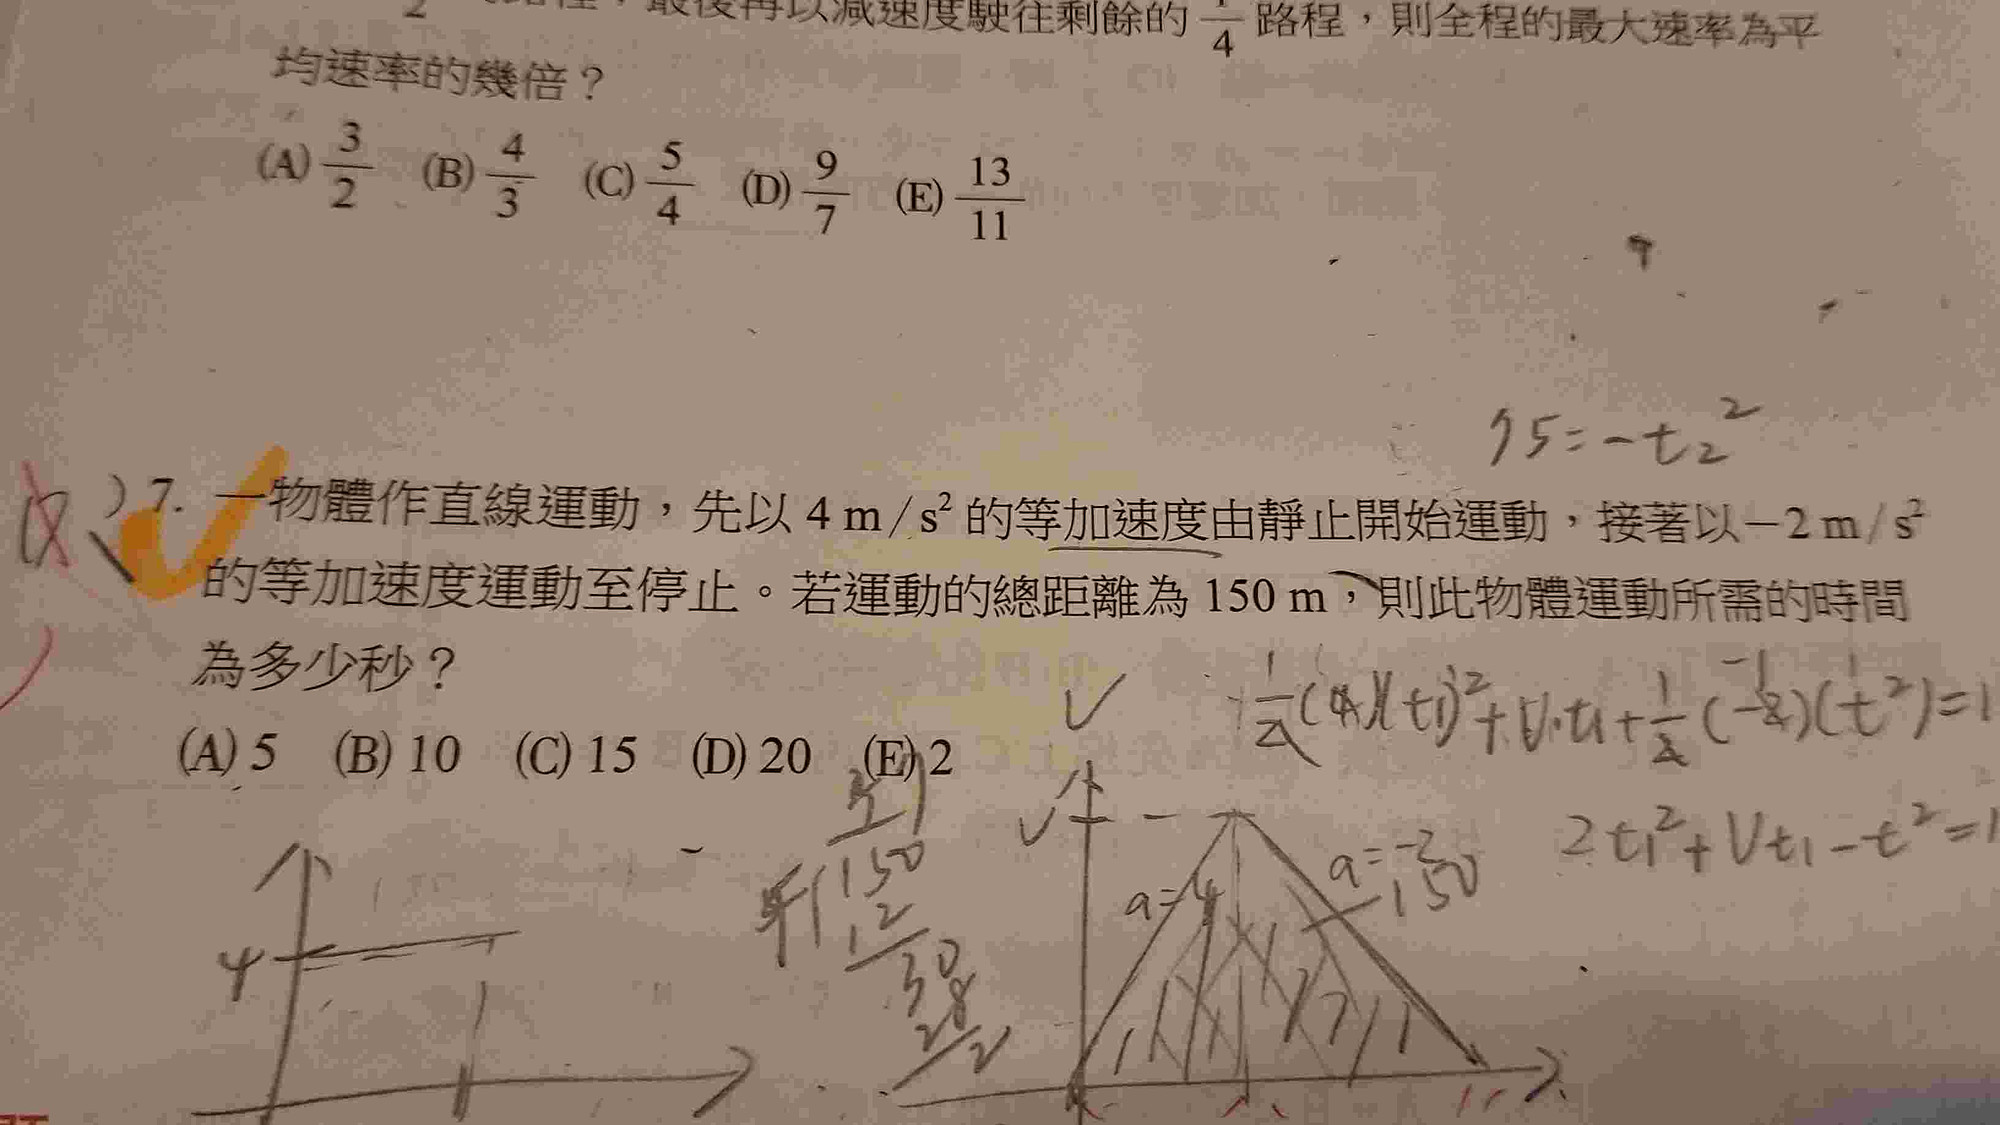 最後再以減速度駛往剩餘的 1/4 路程，則全程的最大速率為平
均速率的幾倍？
(A) 3/2 (B) 4/3 (C) 5/4 (D) 9/7 (E) 13/11
75=-t₂²
7. 一物體作直線運動，先以 4 m/s² 的等加速度由靜止開始運動，接著以－2 m/s²
的等加速度運動至停止。若運動的總距離為 150 m，則此物體運動所需的時間
為多少秒？
(A) 5 (B) 10 (C) 15 (D) 20 (E) 2
V
V
2t₁²+Vt₁-t²=1
a=4
a=-2
150
4
150
12